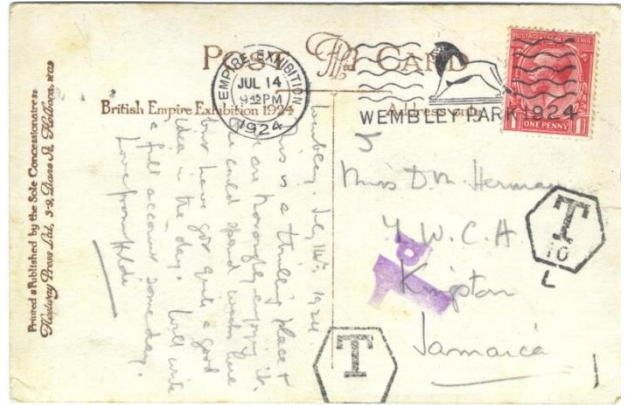 POST CARD
EMPIRE EXHIBITION
JUL 14
9 PM
1924
WEMBLEY PARK 1924
ONE PENNY
British Empire Exhibition 1924
Address only
Printed & Published by the Sole Concessionaires
Fleetway Press Ltd, 3-9, Dane St, Holborn, W.C.2
Wembley, July 14th, 1924
This is a thrilling place &
we are thoroughly enjoying it.
We could spend weeks here
but have got quite a good
idea in the day. Will write
a full account some day.
Love from Hilda
Miss D. M. Herman
Y. W. C. A.
Kingston
Jamaica
T
10
L
T
1d